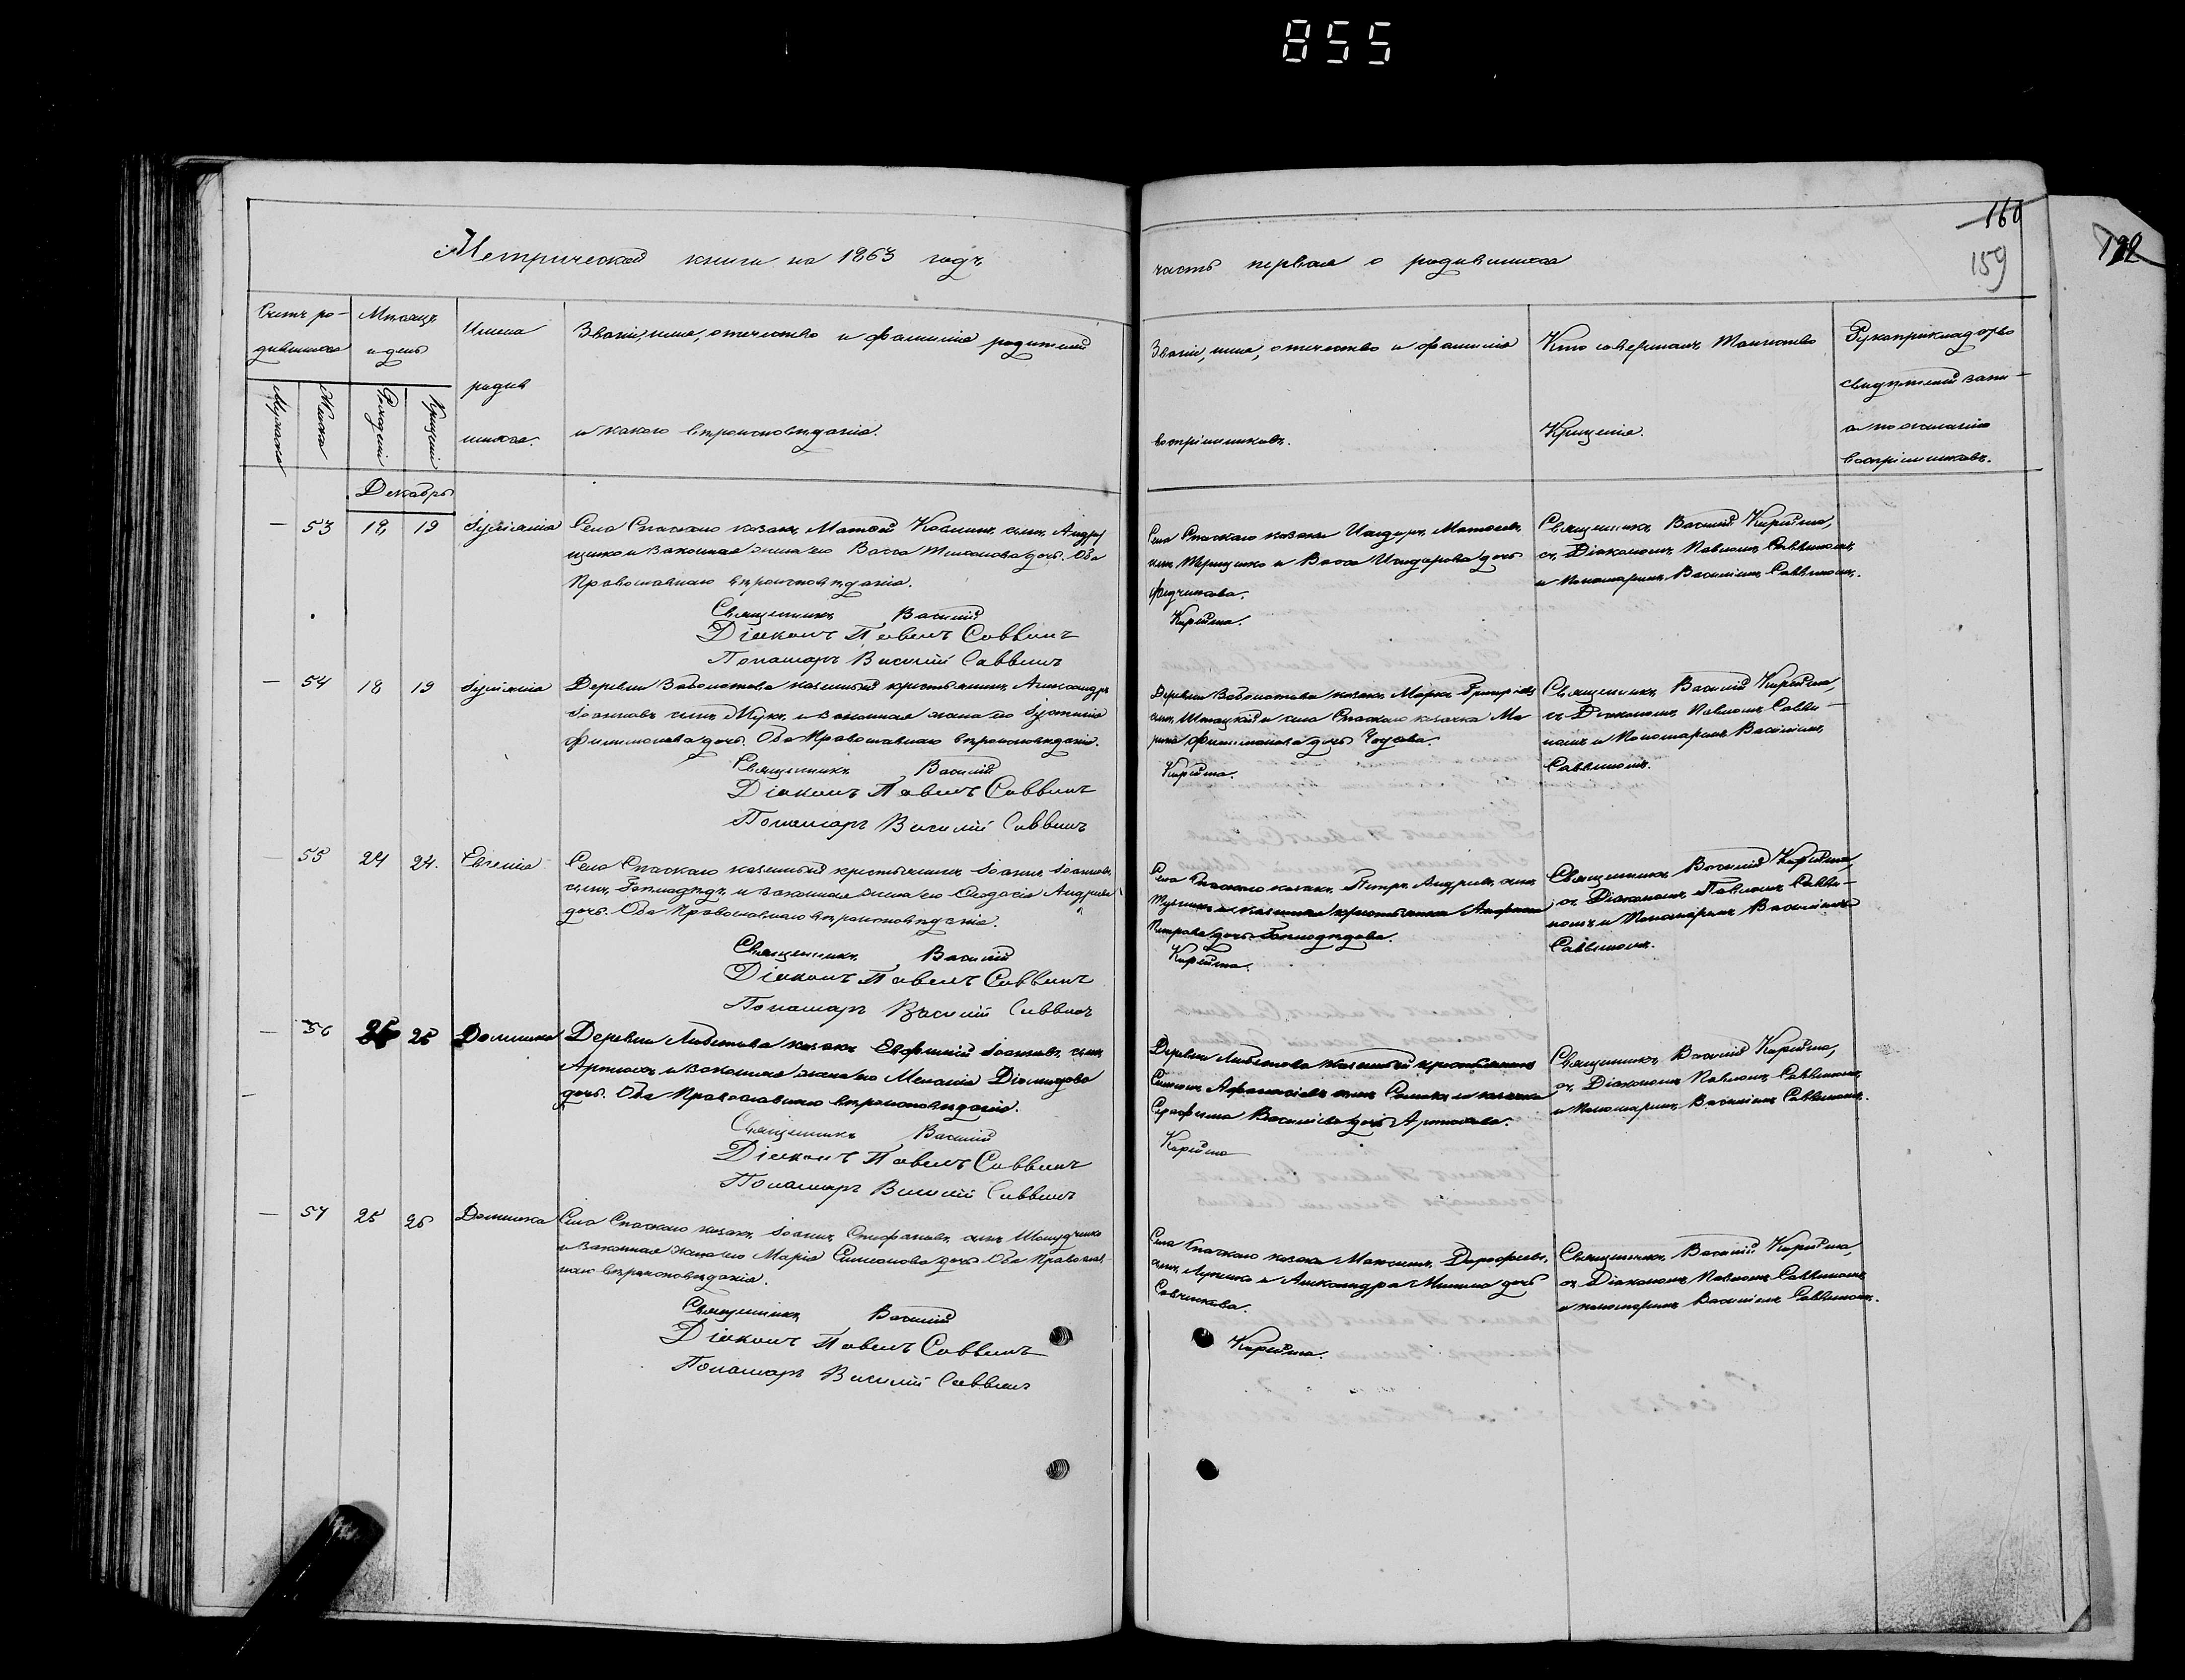 855
160
159
192
Метрической книги на 1863 годъ
часть первая о родившихся
Счетъ ро-
дившихся
Мѣсяцъ
и день
Имена
родив
шихся.
Званіе, имя, отчество и фамилія родителей
и какого вѣроисповѣданія.
Мужеска
Женска
Рожденія
Крещенія
Званіе, имя, отчество и фамилія
воспріемниковъ.
Кто совершалъ таинство
Крещенія.
Рукоприкладство
свидѣтелей запи-
си по желанію
воспріемниковъ.
Декабрь
— 53 18 19 Іуліанія
Села Спаскаго казакъ Матѳей сынъ
и законная жена его Васса дочь. Оба
Православнаго вѣроисповѣданія.
Священникъ Василій
Діаконъ Павелъ Саввинъ
Пономарь Василій Саввинъ
Села Спаскаго казаки Исидоръ Матѳеевъ
сынъ Терещенко и Васса Исидорова дочь
Федченкова.
Кирѣйша.
Священникъ Василій Кирѣйша,
съ Діакономъ Павломъ Саввиномъ,
и Пономаремъ Василіемъ Саввиномъ.
— 54 18 19 Іуліанія
Деревни Заболотова казенный крестьянинъ Александръ
Іоанновъ сынъ Жукъ, и законная жена его
Филимонова дочь. Оба Православнаго вѣроисповѣданія.
Священникъ Василій
Діаконъ Павелъ Саввинъ
Пономарь Василій Саввинъ
Деревни Заболотова казакъ Марко Григоріевъ
сынъ и села Спаскаго казачка Ма-
рина Филимонова дочь
Кирѣйша.
Священникъ Василій Кирѣйша,
съ Діакономъ Павломъ Савви-
номъ и Пономаремъ Василіемъ
Саввиномъ.
— 55 24 24. Евгенія
Села Спаскаго казенный крестьянинъ Іоаннъ Іоанновъ
сынъ и законная жена его Ѳеодосія Андреева
дочь. Оба Православнаго вѣроисповѣданія.
Священникъ Василій
Діаконъ Павелъ Саввинъ
Пономарь Василій Саввинъ
Села Спаскаго казакъ Петръ Андреевъ сынъ
и казенная крестьянка
Петрова дочь
Кирѣйша.
Священникъ Василій Кирѣйша,
съ Діакономъ Павломъ Савви-
номъ и Пономаремъ Василіемъ
Саввиномъ.
— 56 25 Домника
Деревни казакъ Евфимій Іоанновъ сынъ
Артюхъ и законная жена его Меланія Діомидова
дочь. Оба Православнаго вѣроисповѣданія.
Священникъ Василій
Діаконъ Павелъ Саввинъ
Пономарь Василій Саввинъ
Деревни казенный крестьянинъ
Симеонъ Афанасіевъ сынъ и казачка
Серафима Василіева дочь Артюхова.
Кирѣйша
Священникъ Василій Кирѣйша,
съ Діакономъ Павломъ Саввиномъ
и Пономаремъ Василіемъ Саввиномъ.
— 57 25 26 Домника
Села Спаскаго казакъ Іоаннъ Стефановъ сынъ
и законная жена его Марія Симеонова дочь. Оба Православ-
наго вѣроисповѣданія.
Священникъ Василій
Діаконъ Павелъ Саввинъ
Пономарь Василій Саввинъ
Села Спаскаго казаки Максимъ Дорофеевъ
сынъ и Александра Минина дочь
Савченкова.
Кирѣйша.
Священникъ Василій Кирѣйша,
съ Діакономъ Павломъ Саввиномъ
и пономаремъ Василіемъ Саввиномъ.